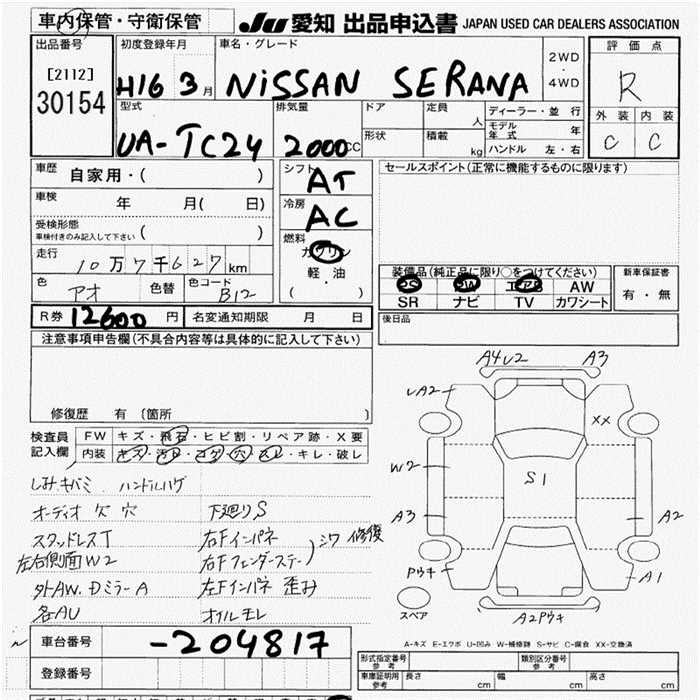 車内保管・守衛保管 JU 愛知 出品申込書 JAPAN USED CAR DEALERS ASSOCIATION
出品番号 初度登録年月 車名・グレード 2WD・4WD 評価点
[2112]
30154
H16 3月 NiSSAN SERANA R
型式 排気量 ドア 定員 人 ディーラー・並行 外装 内装
モデル年式 年
UA-TC24 2000cc 形状 積載 kg ハンドル 左・右 C C
車歴 自家用・( ) シフト AT セールスポイント(正常に機能するものに限ります)
車検 年 月( 日) 冷房 AC
受検形態
車検付きのみ記入して下さい ( )
燃料 ガソリン
走行 10万7千627km 軽・油
( )
装備品(純正品に限り○をつけてください) 新車保証書
色 アオ 色替 色コード B12
PS PW エアB AW 有・無
SR ナビ TV カワシート
R券 12600円 名変通知期限 月 日 後日品
注意事項申告欄(不具合内容等は具体的に記入して下さい)
修復歴 有 〔箇所 〕
検査員記入欄 FW キズ・飛石・ヒビ割・リペア跡・X要
内装 キズ・汚れ・コゲ・穴・スレ・キレ・破レ
しみキバミ ハンドルハゲ
オーディオ欠 穴 下廻りS
スタッドレスT 右Fインパネ
左右側面W2 右Fフェンダーステー シワ 修復
外AW. Dミラー A 左Fインパネ 歪み
各AU オイルモレ
A4U2 A3
UA2 XX
W2 S1
A3 A2
Pウキ A1
スペア A2Pウキ
A-キズ E-エクボ U-凹み W-補修跡 S-サビ C-腐食 XX-交換済
車台番号 -204817
登録番号
形式指定番号 参考 類別区分番号 参考
車庫証明用 参考 長さ cm 幅 cm 高さ cm